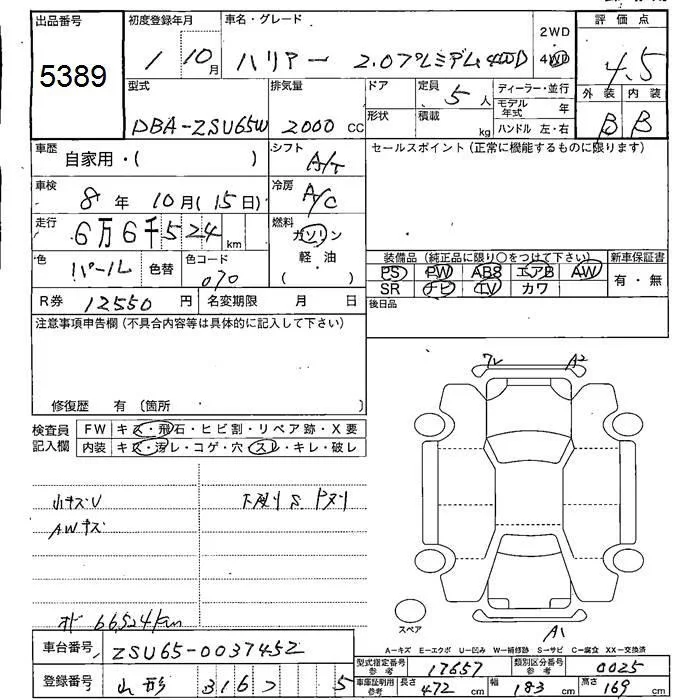 出品番号 初度登録年月 車名・グレード 2WD 評価点
5389 1 10月 ハリアー 2.0プレミアム 4WD 4WD 4.5
型式 排気量 ドア 定員 5人 ディーラー・並行 外装 内装
モデル年式 年
DBA-ZSU65W 2000 CC 形状 積載 kg ハンドル 左・右 B B
車歴 自家用・( ) シフト A/T セールスポイント(正常に機能するものに限ります)
車検 8年 10月(15日) 冷房 A/C
走行 6万6千524 km 燃料 ガソリン
軽・油
( )
色 パール 色替 色コード 070 装備品(純正品に限り○をつけて下さい) 新車保証書
PS PW ABS エアB AW 有・無
SR ナビ TV カワ
R券 12550 円 名変期限 月 日 後日品
注意事項申告欄(不具合内容等は具体的に記入して下さい)
修復歴 有 〔箇所 〕
ワレ A2
検査員 FW キズ・飛石・ヒビ割・リペア跡・X要
記入欄 内装 キズ・汚レ・コゲ・穴・スレ・キレ・破レ
小キズU
AWキズ
66,524km
スペア
A1
A-キズ E-エクボ U-凹み W-補修跡 S-サビ C-腐食 XX-交換済
車台番号 ZSU65-0037452
型式指定番号 参考 17657 類別区分番号 参考 0025
登録番号 山形 316 5
車庫証明用 参考 長さ 472 cm 幅 183 cm 高さ 169 cm